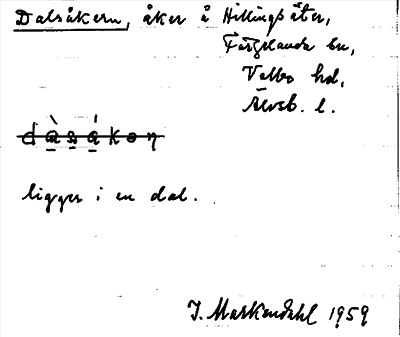 Dalsåkern, åker å Hillingsäter,
Färgelanda sn,
Valbo hd,
Älvsb. l.
dàsåkon
ligger i en dal.
J. Markendahl 1959